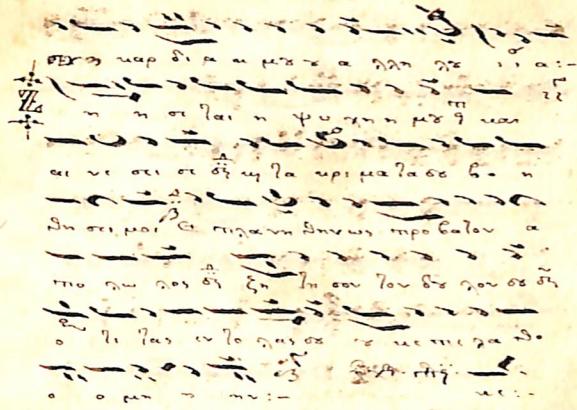 η καρ δι α α μου ου α λλη λου ι ι α:-
Ζ η η σε ται η ψυ χη η μου και
αι νε σει σε κη τα κρι μα τα σου βο η
θη σει μοι Ε πλα νη θην ως προ βατον α
πο λω λος ζη τη σον τον δου λον σου
ο τι τας εν το λας σου ου κε πε λα θο
ο ο μη η ην:-